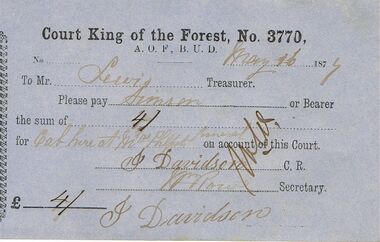 Court King of the Forest, No. 3770,
A. O. F., B. U. D.
No. May 16 1877
To Mr. Lewis Treasurer.
Please pay Simson or Bearer
the sum of 4/
for Cab hire at funeral on account of this Court.
J Davidson C. R.
Secretary.
£ 4/
J Davidson